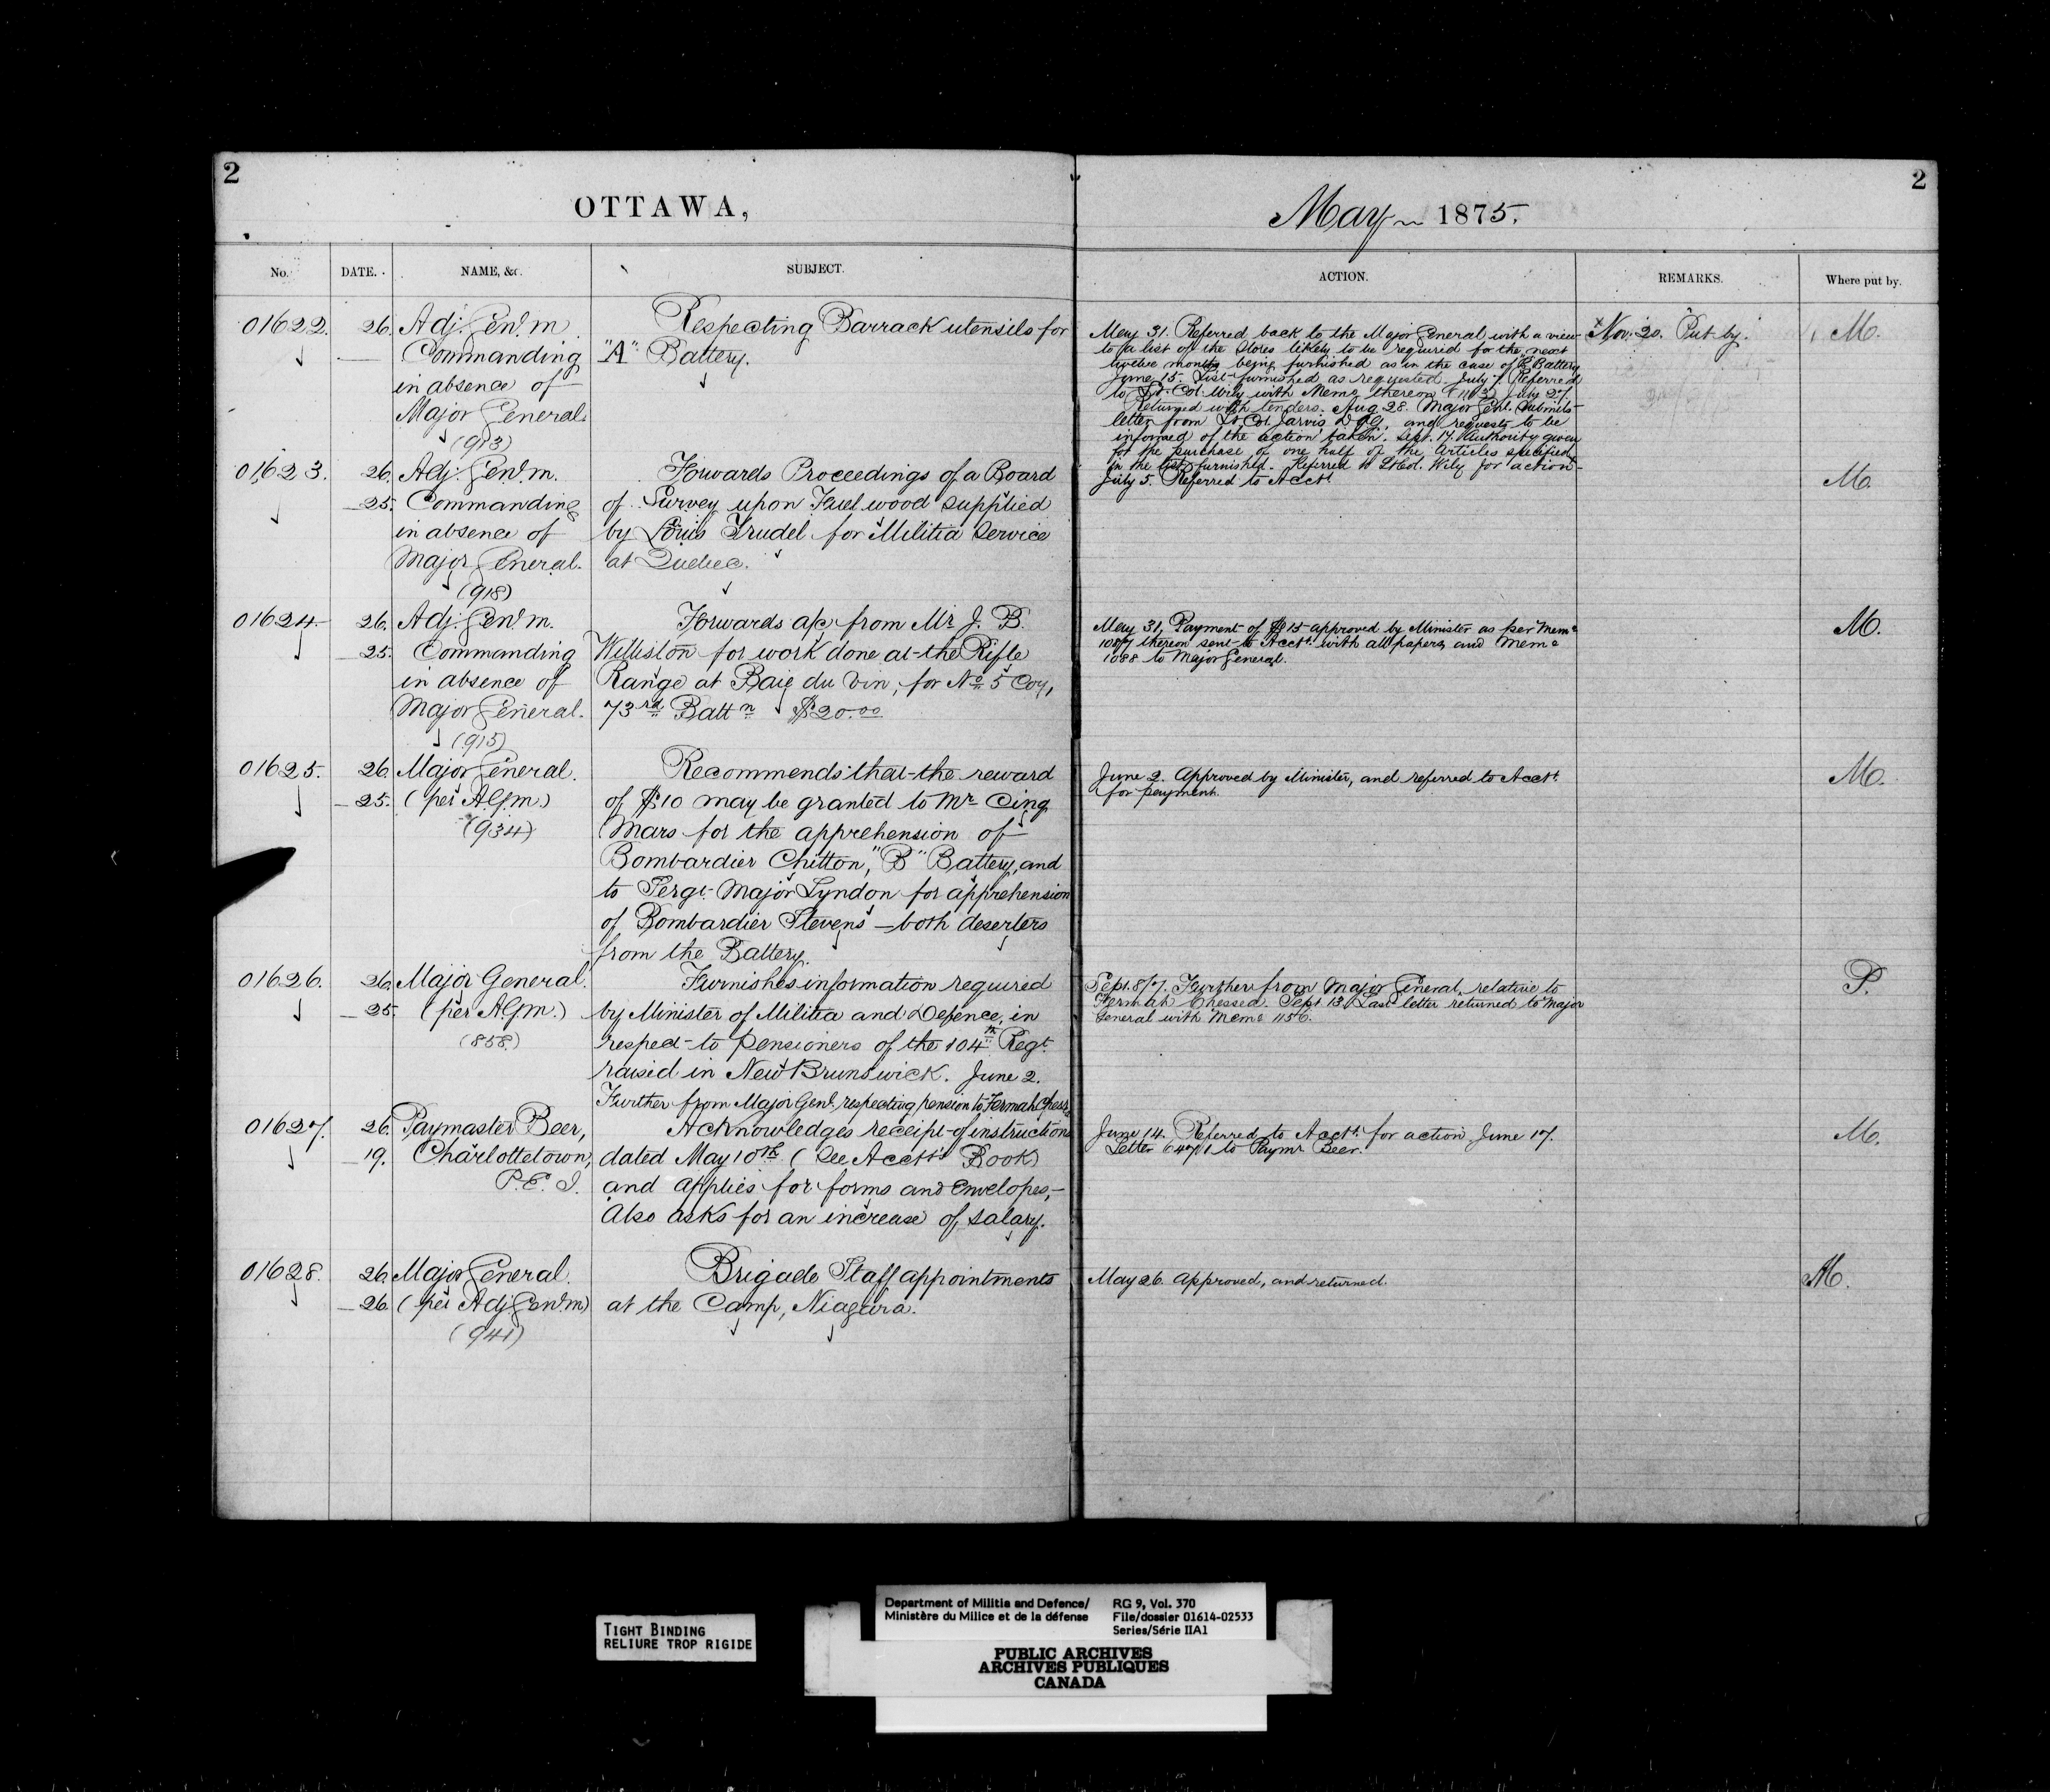 2
OTTAWA,
No.
DATE.
NAME, &c.
SUBJECT.
01622.
26.
Adj. Genl. M.
Commanding
in absence of
Major General.
(913)
Respecting Barrack utensils for
"A" Battery.
01623.
26.
25.
Adj. Genl. M.
Commanding
in absence of
Major General.
(918)
Forwards Proceedings of a Board
of Survey upon Fuel wood supplied
by Louis Trudel for Militia Service
at Quebec.
01624.
26.
25.
Adj. Genl. M.
Commanding
in absence of
Major General.
(915)
Forwards a/c from Mr J. B.
Williston for work done at the Rifle
Range at Baie du Vin, for No 5 Coy,
73rd Battn $20.00
01625.
26.
25.
Major General.
(per A.G.M.)
(934)
Recommends that the reward
of $10 may be granted to Mr Cinq
Mars for the apprehension of
Bombardier Chitton, "B" Battery, and
to Sergt. Major Lyndon for apprehension
of Bombardier Stevens — both deserters
from the Battery.
01626.
26.
25.
Major General.
(per A.G.M.)
(858.)
Furnishes information required
by Minister of Militia and Defence, in
respect to Pensioners of the 104th Regt.
raised in New Brunswick. June 2.
Further from Major Genl. respecting pension to
01627.
26.
19.
Paymaster Beer,
Charlottetown,
P.E.I.
Acknowledges receipt of instructions
dated May 10th (See Acct's Book)
and applies for forms and envelopes,—
Also asks for an increase of salary.
01628.
26.
26.
Major General.
(per Adj. Genl. M)
(941)
Brigade Staff appointments
at the Camp, Niagara.
2
May 1875.
ACTION.
REMARKS.
Where put by.
May 31. Referred back to the Major General with a view
to a list of the Stores likely to be required for the next
twelve months being furnished as in the case of "B" Battery
June 15. List furnished as requested. July 7. Referred
to Lt. Col. Wily with Memo thereon July 27.
Returned with tenders. Aug 28. Major Genl. submits
letter from Lt. Col. Jarvis D.A.G. and requests to be
informed of the action taken. Sept. 17. Authority given
for the purchase of one half of the Articles specified
in the list furnished. Referred to Lt Col. Wily for action
Nov. 20. Put by.
M.
July 5. Referred to Acct.
M.
May 31, Payment of $15 approved by Minister as per Memo
1087 thereon sent to Acct. with all papers and Memo
1088 to Major General.
M.
June 2. Approved by Minister, and referred to Acct.
for payment.
M.
Sept. 8/7. Further from Major General, relative to
Sept 13. Last letter returned to Major
General with Memo 1156.
P.
June 14. Referred to Acct. for action June 17.
Letter to Paymr Beer.
M.
May 26. Approved, and returned.
M.
TIGHT BINDING
RELIURE TROP RIGIDE
Department of Militia and Defence/
Ministère du Milice et de la défense
RG 9, Vol. 370
File/dossier 01614-02533
Series/Série IIA1
PUBLIC ARCHIVES
ARCHIVES PUBLIQUES
CANADA